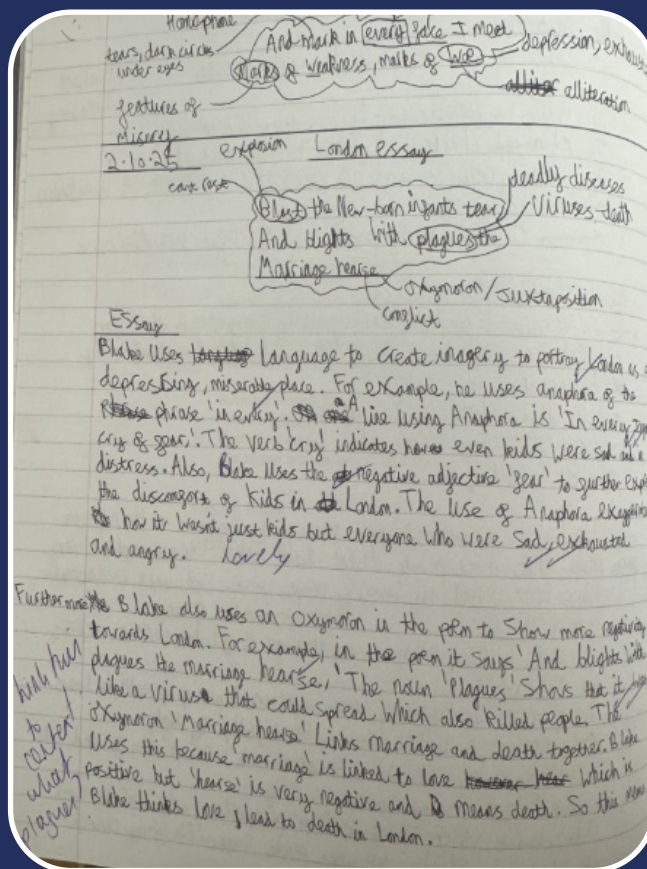 Homophone
And mark in every face I meet
tears, dark circles under eyes
Marks of weakness, marks of woe
depression,
alliteration
features of misery
2.10.25
explosion
London essay
contrast
deadly diseases
Viruses - death
Blast the New-born infants tear
And blights with plagues the
Marriage hearse
oxymoron / Juxtaposition
conflict
Essay
Blake uses language to create imagery to portray London as a
depressing, miserable place. For example, he uses anaphora of the
phrase 'in every'. A line using Anaphora is 'In every
cry of fear,'. The verb 'cry' indicates how even kids were sad
distress. Also, Blake uses the negative adjective 'fear' to further
the discomfort of kids in London. The use of Anaphora
how it wasn't just kids but everyone who were sad, exhausted
and angry.
Lovely
Furthermore Blake also uses an oxymoron in the poem to show more negativity
towards London. For example, in the poem it says 'And blights with
plagues the marriage hearse,' The noun 'Plagues' shows that it
like a virus that could spread which also killed people. The
oxymoron 'Marriage hearse' links marriage and death together. Blake
uses this because 'marriage' is linked to love which is
positive but 'hearse' is very negative and means death. So this
Blake thinks love, lead to death in London.
to
what
plagues